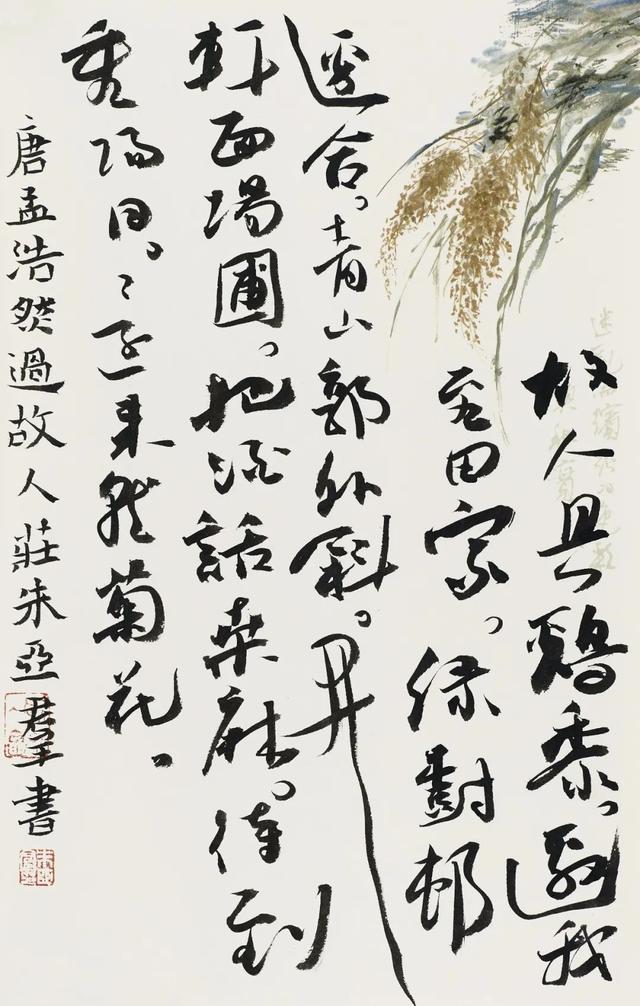 故人具鷄黍。邀我
至田家。綠樹邨
邊合。青山郭外斜。開
軒面場圃。把酒話桑麻。待到
重陽日。還来就菊花。
唐孟浩然過故人莊朱亞羣書